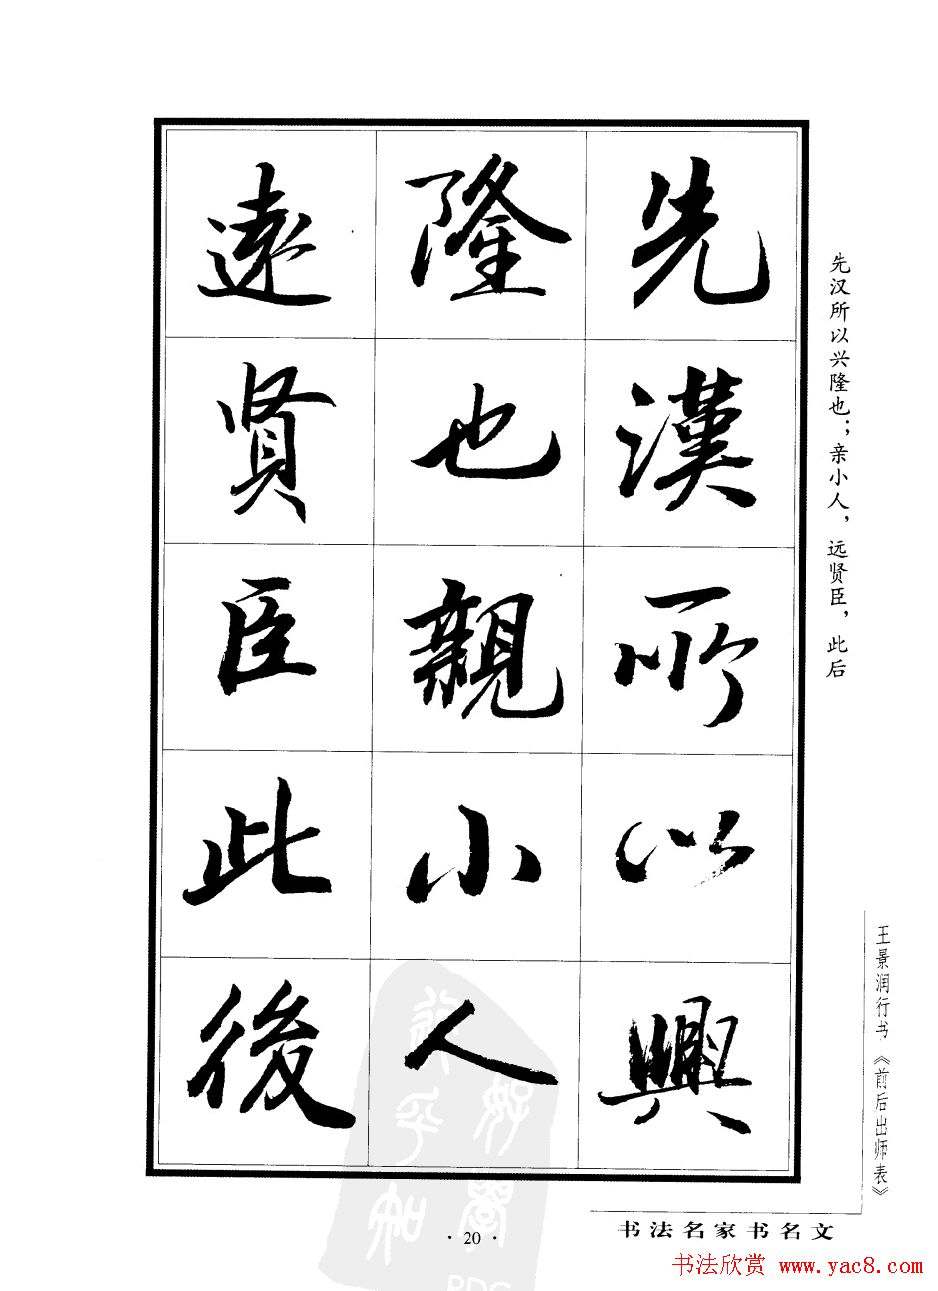 先漢所以興
隆也親小人
遠賢臣此後
先汉所以兴隆也；亲小人，远贤臣，此后
王景润行书《前后出师表》
书法名家书名文
·20·
书法欣赏 www.yac8.com